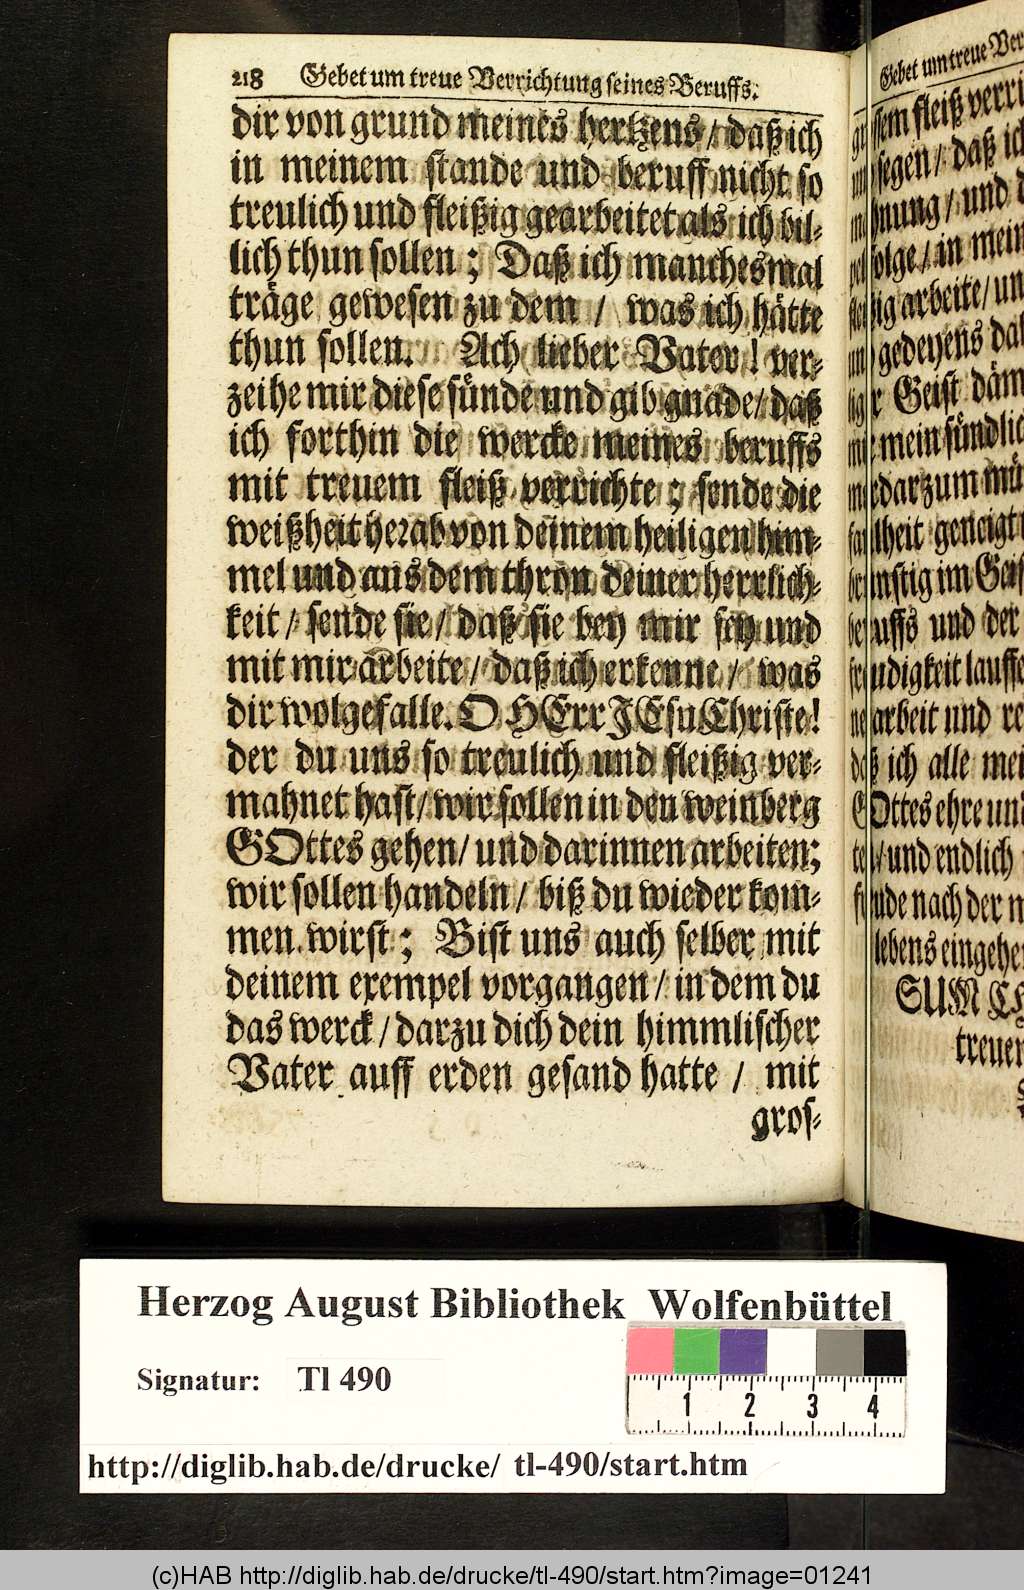 218 Gebet um treue Verrichtung seines Beruffs.
dir von grund meines hertzens / daß ich
in meinem stande und beruff nicht so
treulich und fleißig gearbeitet als ich bil-
lich thun sollen ; Daß ich manchesmal
träge gewesen zu dem / was ich hätte
thun sollen. Ach lieber Vater! ver-
zeihe mir diese sünde und gib gnade / daß
ich forthin die wercke meines beruffs
mit treuem fleiß verrichte ; sende die
weißheit herab von deinem heiligen him-
mel und aus dem thron deiner herrlich-
keit / sende sie / daß sie bey mir sey und
mit mir arbeite / daß ich erkenne / was
dir wolgefalle. O HErr JEsu Christe!
der du uns so treulich und fleißig ver-
mahnet hast / wir sollen in den weinberg
GOttes gehen / und darinnen arbeiten;
wir sollen handeln / biß du wieder kom-
men wirst ; Bist uns auch selber mit
deinem exempel vorgangen / in dem du
das werck / darzu dich dein himmlischer
Vater auff erden gesand hatte / mit
gros-
Gebet um treue Ver
fleiß verri
segen / daß ich
und
in mein
arbeite / un
gedeyens
Geist däm
mein sündlic
darzum mü
geneigt
im Geis
und der
lauffe
arbeit und re
ich alle mei
GOttes ehre und
und endlich
nach der
lebens eingehe
treuen
Herzog August Bibliothek Wolfenbüttel
Signatur: Tl 490
1 2 3 4
http://diglib.hab.de/drucke/ tl-490/start.htm
(c)HAB http://diglib.hab.de/drucke/tl-490/start.htm?image=01241